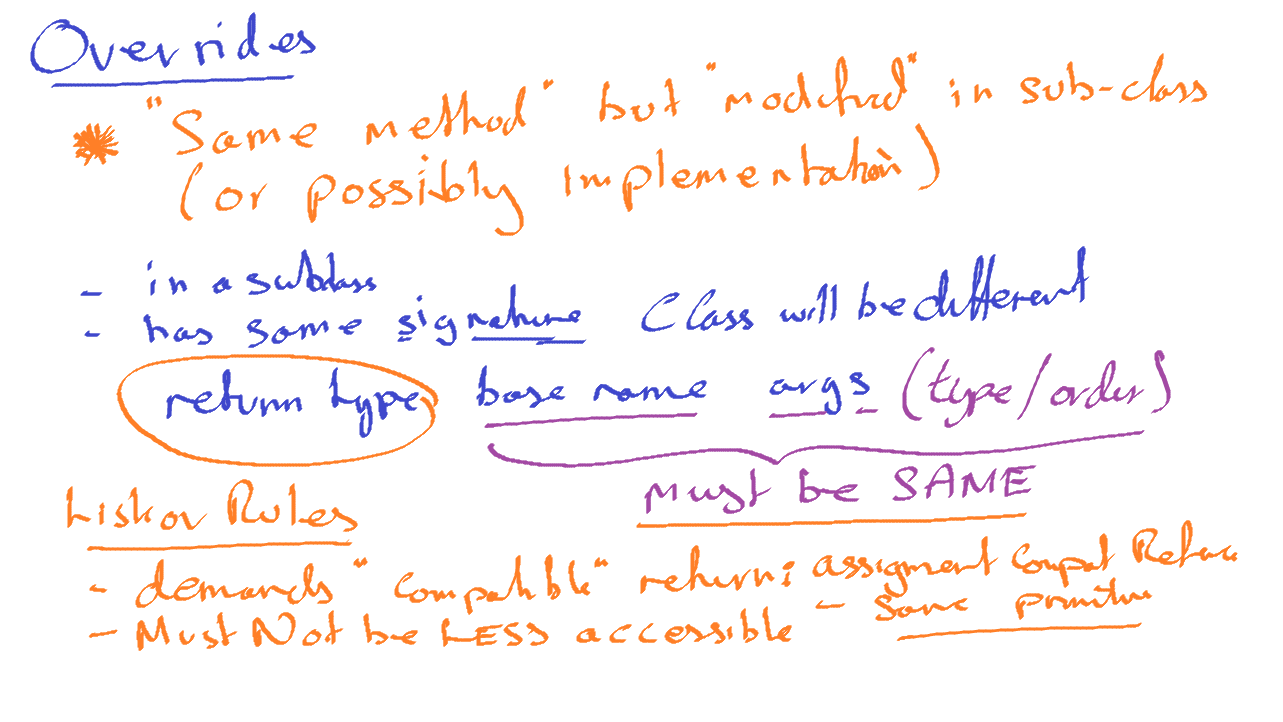 Overrides
"Same method" but "modified" in sub-class
(or possibly implementation)
- in a subclass
- has same signature Class will be different
return type base name args (type/order)
Must be SAME
Liskov Rules
- demands "compatible" return; assigment compat Reference
- same primitive
- Must Not be LESS accessible